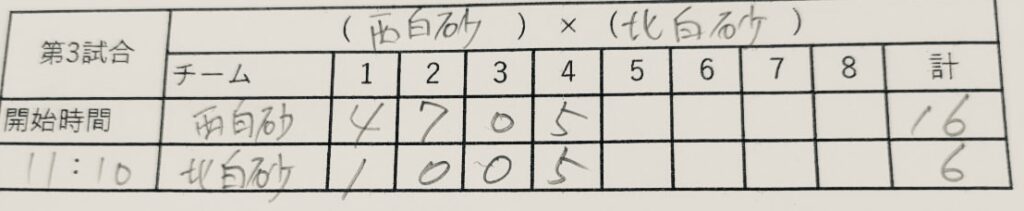 第3試合 (西白砂) × (北白砂)
チーム 1 2 3 4 5 6 7 8 計
開始時間 西白砂 4 7 0 5 16
11:10 北白砂 1 0 0 5 6